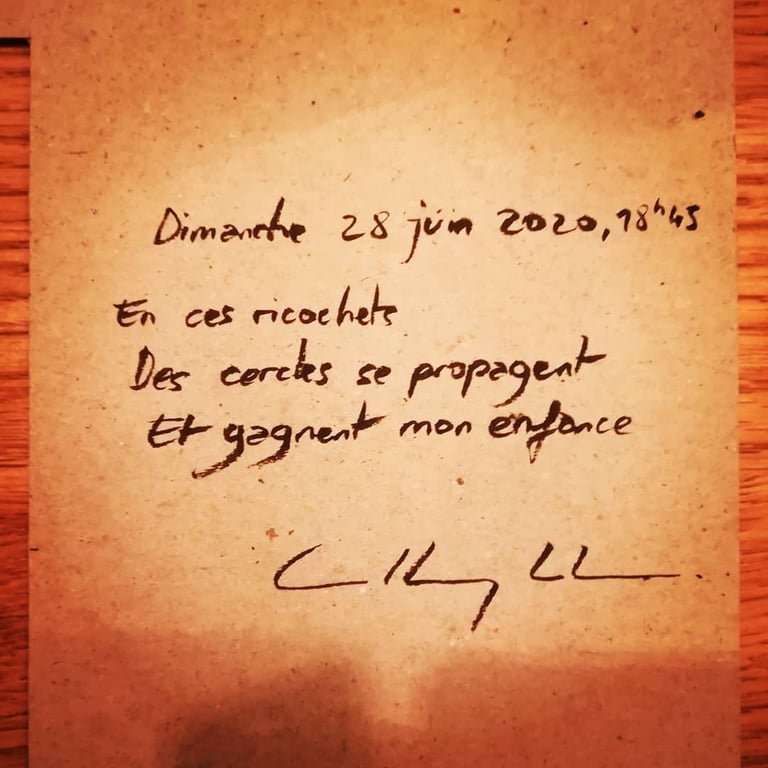 Dimanche 28 juin 2020, 18h45
En ces ricochets
Des cercles se propagent
Et gagnent mon enfance